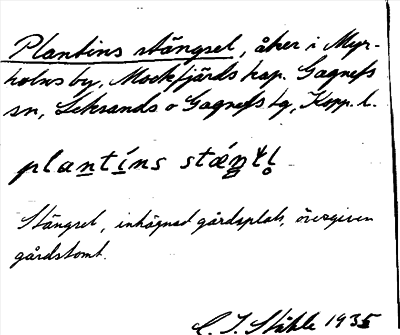 Plantins stängsel, åker i Myr-
holns by, Mockfjärds kap. Gagnefs
sn, Leksands o Gagnefs tg, Kopp. l.
plantíns stǽŋsl̥
Stängsel, inhägnad gårdsplats, övergiven
gårdstomt.
C. I. Ståhle 1935